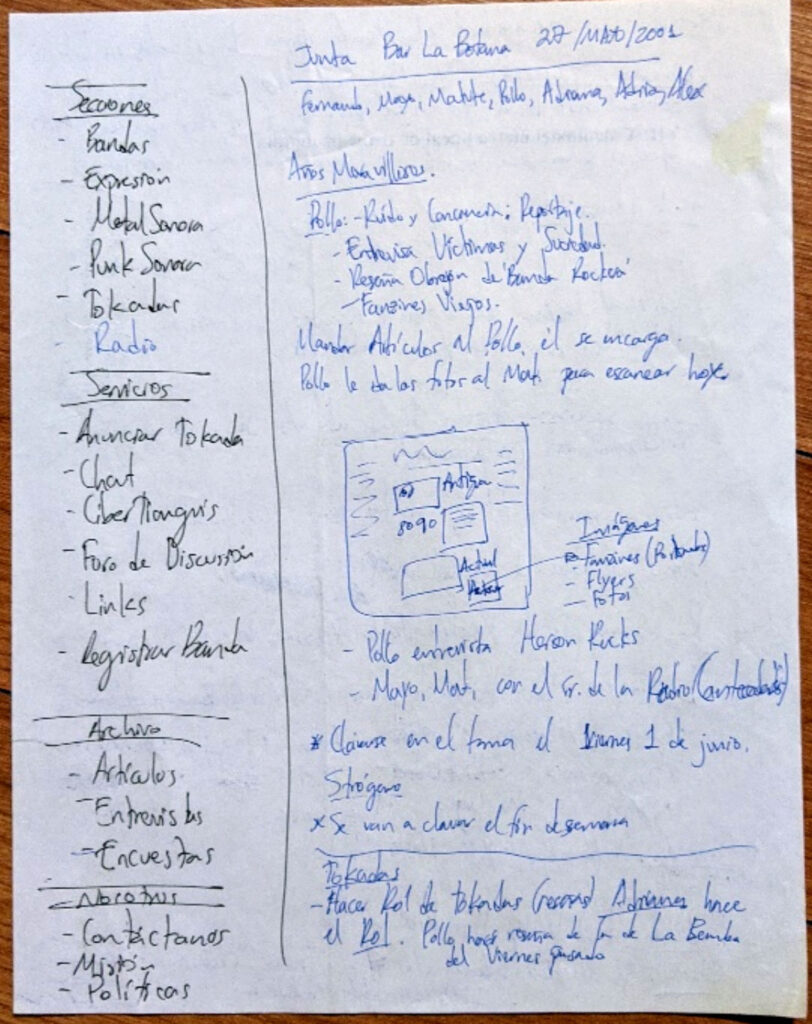 Secciones
- Bandas
- Expresión
- Metal Sonora
- Punk Sonora
- Tokadas
- Radio
Servicios
- Anunciar Tokada
- Chat
- CiberTianguis
- Foro de Discusión
- Links
- Registrar Banda
Archivo
- Artículos
- Entrevistas
- Encuestas
Nosotros
- Contáctanos
- Misión
- Políticas
Junta Bar La Botana 27/MAYO/2001
Fernando, Mayo, Matute, Pollo, Adriana, Adrian, Alex
Años Maravillosos.
Pollo: - Ruido y Reportaje.
- Entrevista Victimas y Sociedad.
- Reseña Obregón de 'Banda Rockera'
- Fanzines Viejos.
Mandar Artículos al Pollo, él se encarga.
Pollo le da las fotos al Mat. para escanear hoy.
Antigua
8090
Actual
Imágenes
- Fanzines (Portadas)
- Flyers
- Fotos
- Pollo entrevista Rucks
- Mayo, Mat, con el sr. de la Radio
* Clavarse en el tema el Viernes 1 de junio.
Strógeno
x Se van a clavar el fin de semana
Tokadas
- Hacer Rol de tokadas Adrianes hace
el Rol. Pollo hace reseña de la de La Bemba
del Viernes pasado